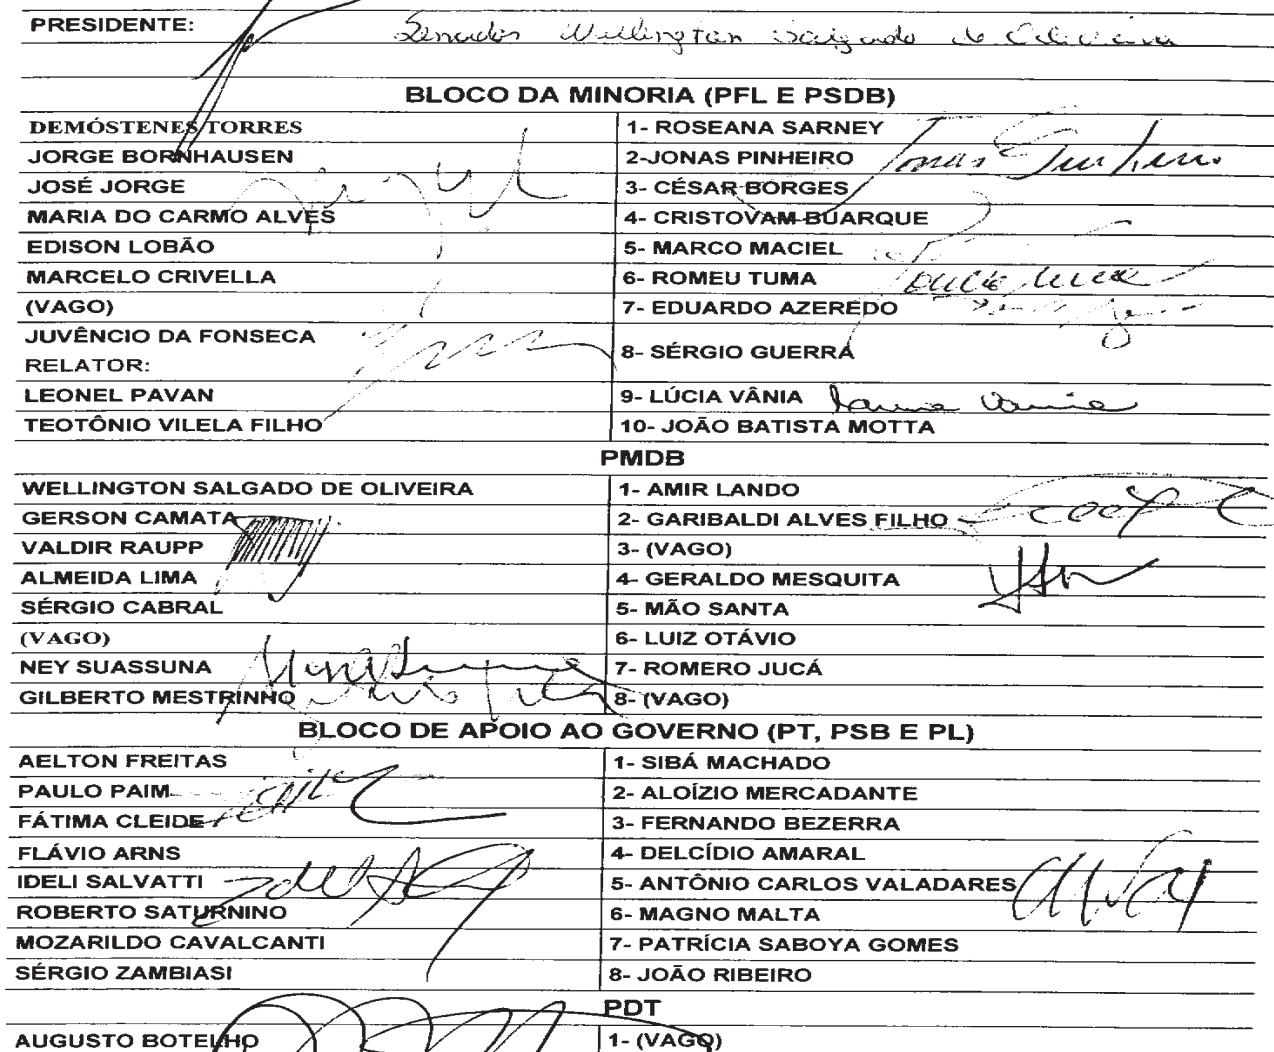 PRESIDENTE: Senador Wellington Salgado de Oliveira
BLOCO DA MINORIA (PFL E PSDB)
DEMÓSTENES TORRES 1- ROSEANA SARNEY
JORGE BORNHAUSEN 2-JONAS PINHEIRO Jonas Pinheiro
JOSÉ JORGE 3- CÉSAR BORGES
MARIA DO CARMO ALVES 4- CRISTOVAM BUARQUE
EDISON LOBÃO 5- MARCO MACIEL
MARCELO CRIVELLA 6- ROMEU TUMA
(VAGO) 7- EDUARDO AZEREDO
JUVÊNCIO DA FONSECA
RELATOR: 8- SÉRGIO GUERRA
LEONEL PAVAN 9- LÚCIA VÂNIA Lúcia Vânia
TEOTÔNIO VILELA FILHO 10- JOÃO BATISTA MOTTA
PMDB
WELLINGTON SALGADO DE OLIVEIRA 1- AMIR LANDO
GERSON CAMATA 2- GARIBALDI ALVES FILHO
VALDIR RAUPP 3- (VAGO)
ALMEIDA LIMA 4- GERALDO MESQUITA
SÉRGIO CABRAL 5- MÃO SANTA
(VAGO) 6- LUIZ OTÁVIO
NEY SUASSUNA 7- ROMERO JUCÁ
GILBERTO MESTRINHO 8- (VAGO)
BLOCO DE APOIO AO GOVERNO (PT, PSB E PL)
AELTON FREITAS 1- SIBÁ MACHADO
PAULO PAIM 2- ALOÍZIO MERCADANTE
FÁTIMA CLEIDE 3- FERNANDO BEZERRA
FLÁVIO ARNS 4- DELCÍDIO AMARAL
IDELI SALVATTI 5- ANTÔNIO CARLOS VALADARES
ROBERTO SATURNINO 6- MAGNO MALTA
MOZARILDO CAVALCANTI 7- PATRÍCIA SABOYA GOMES
SÉRGIO ZAMBIASI 8- JOÃO RIBEIRO
PDT
AUGUSTO BOTELHO 1- (VAGO)